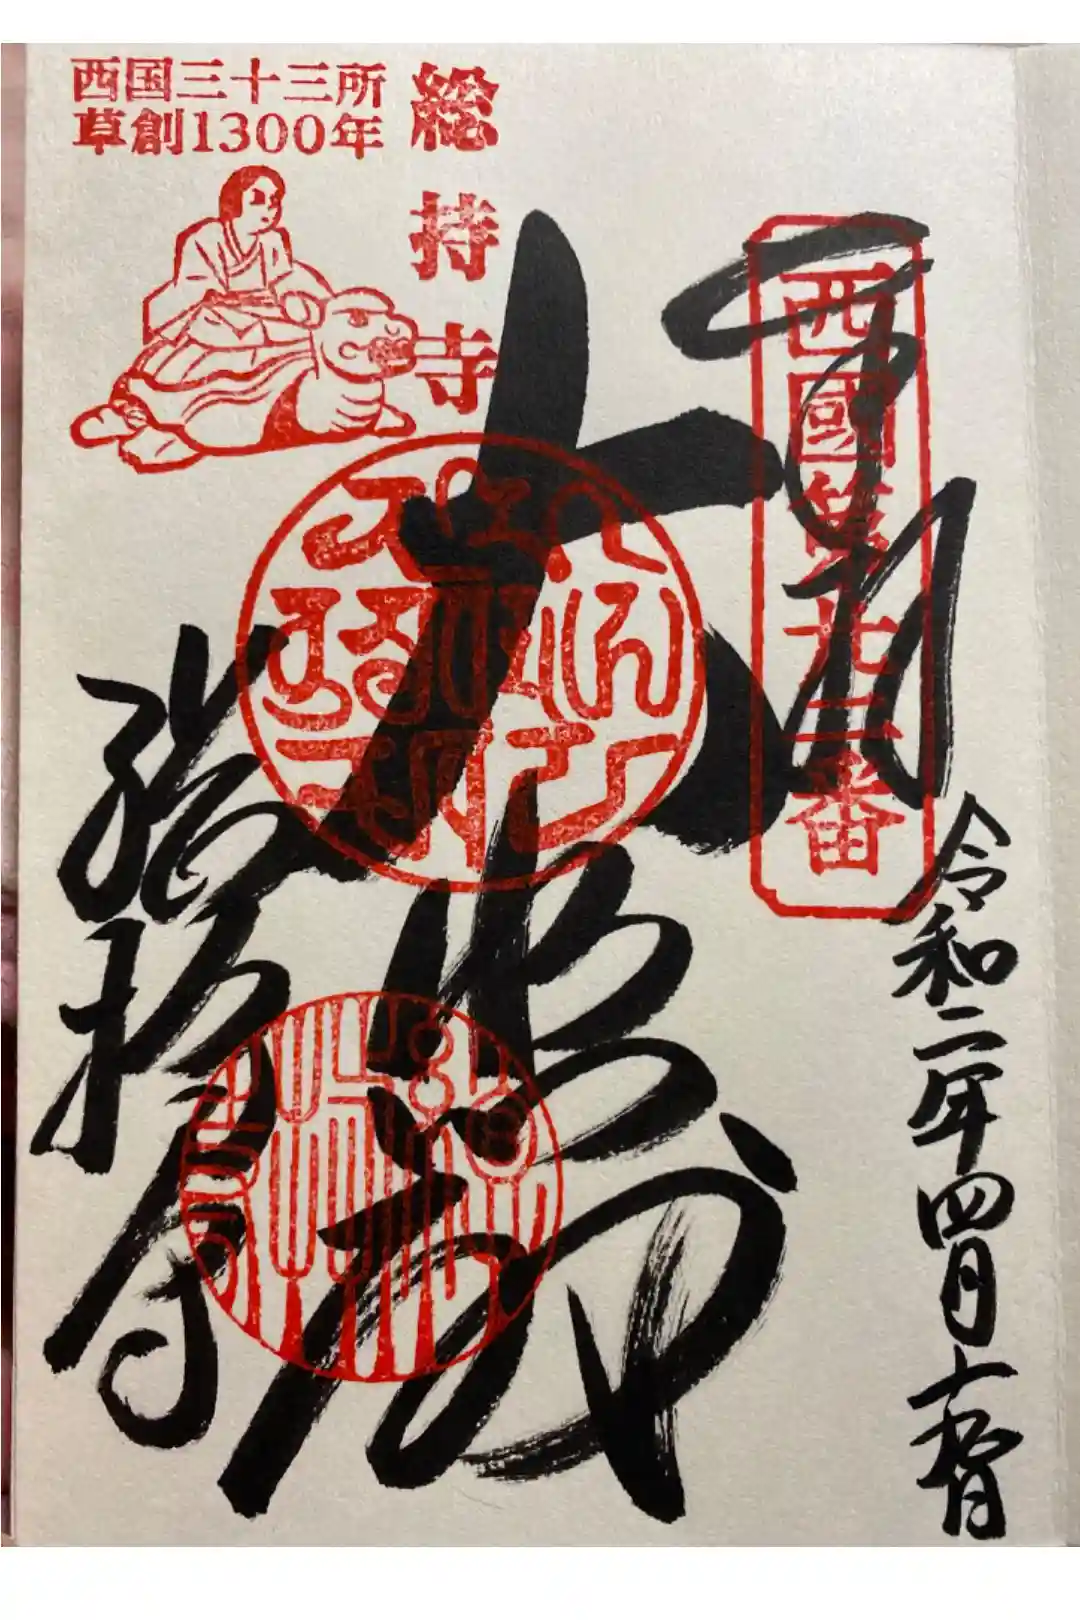 西国三十三所
草創1300年
総持寺
西國第廿二番
奉拝
令和二年四月
大悲殿
総持寺